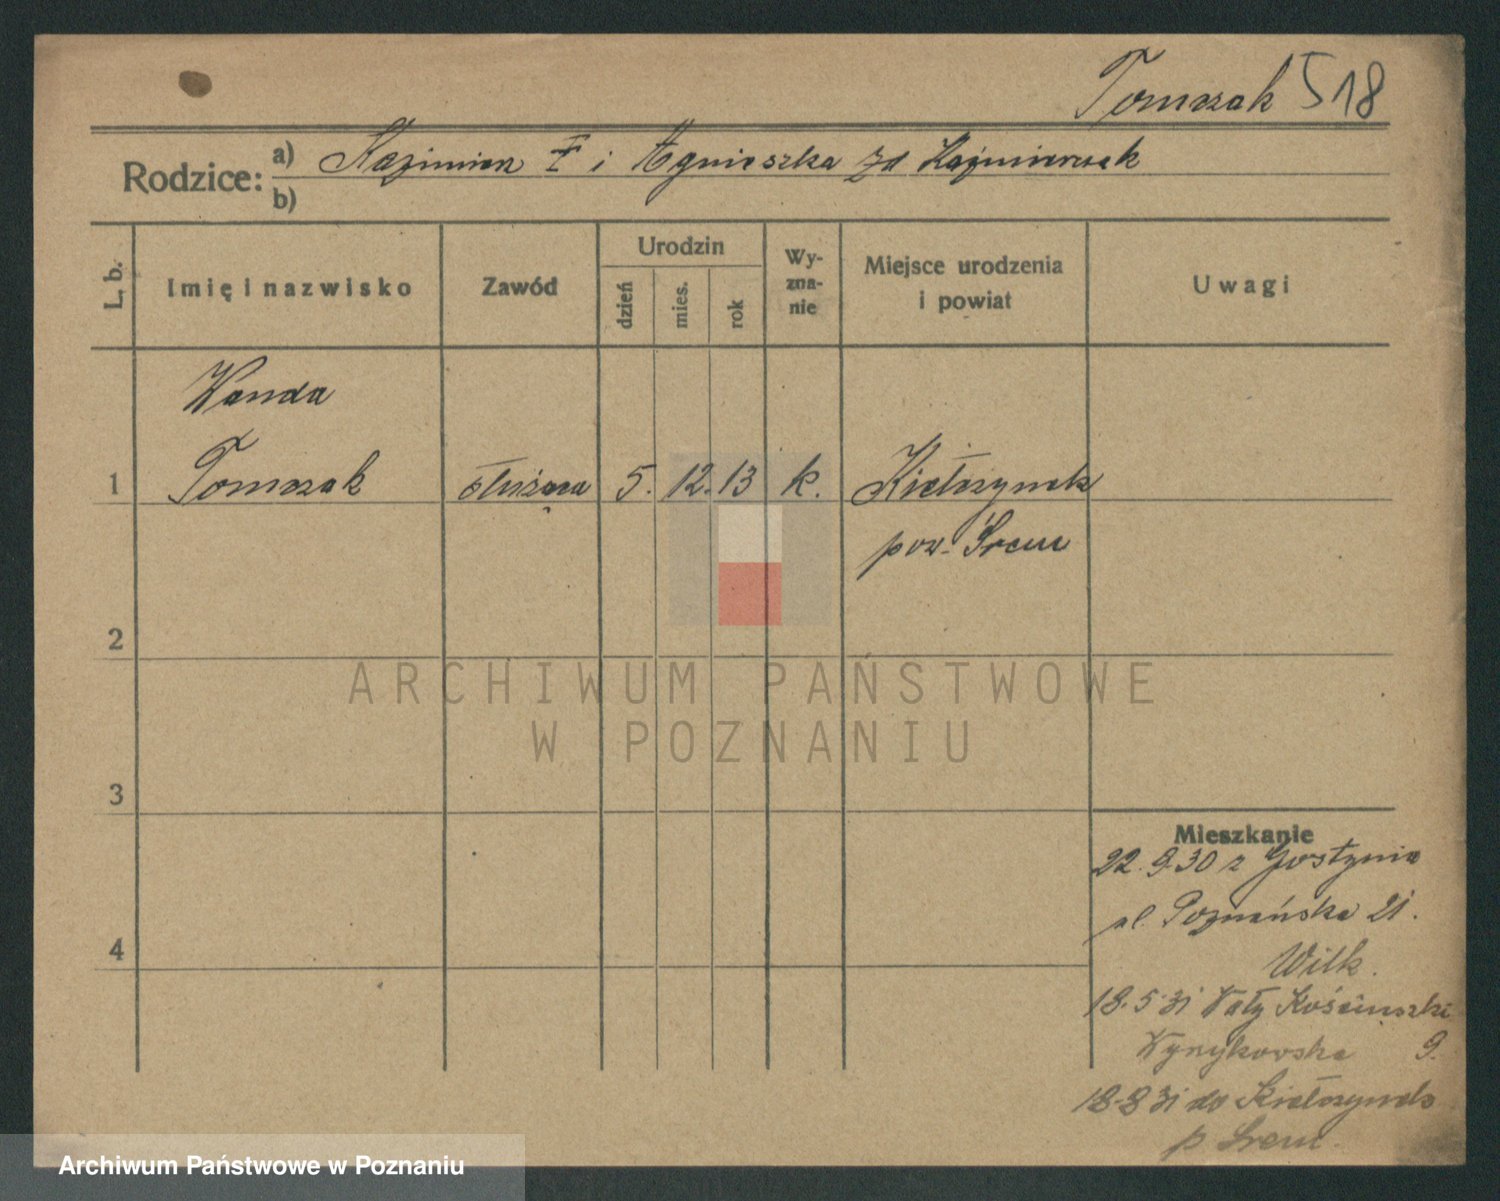 Tomczak 518
Rodzice: a) Kazimierz I i Agnieszka zd Kaźmierczak
b)
L. b.
Imię i nazwisko
Zawód
Urodzin
dzień
mies.
rok
Wy-
zna-
nie
Miejsce urodzenia
i powiat
Uwagi
Wanda
1 Tomczak służąca 5. 12. 13 k. Kiełczynek
pow. Śrem
2
ARCHIWUM PAŃSTWOWE
W POZNANIU
3
Mieszkanie
22.9.30 z Gostynia
ul. Poznańska 21.
4
Wilk.
18.5.31 Wały Kościuszki
9.
18.8.31 do Kiełczynek
p Śrem.
Archiwum Państwowe w Poznaniu